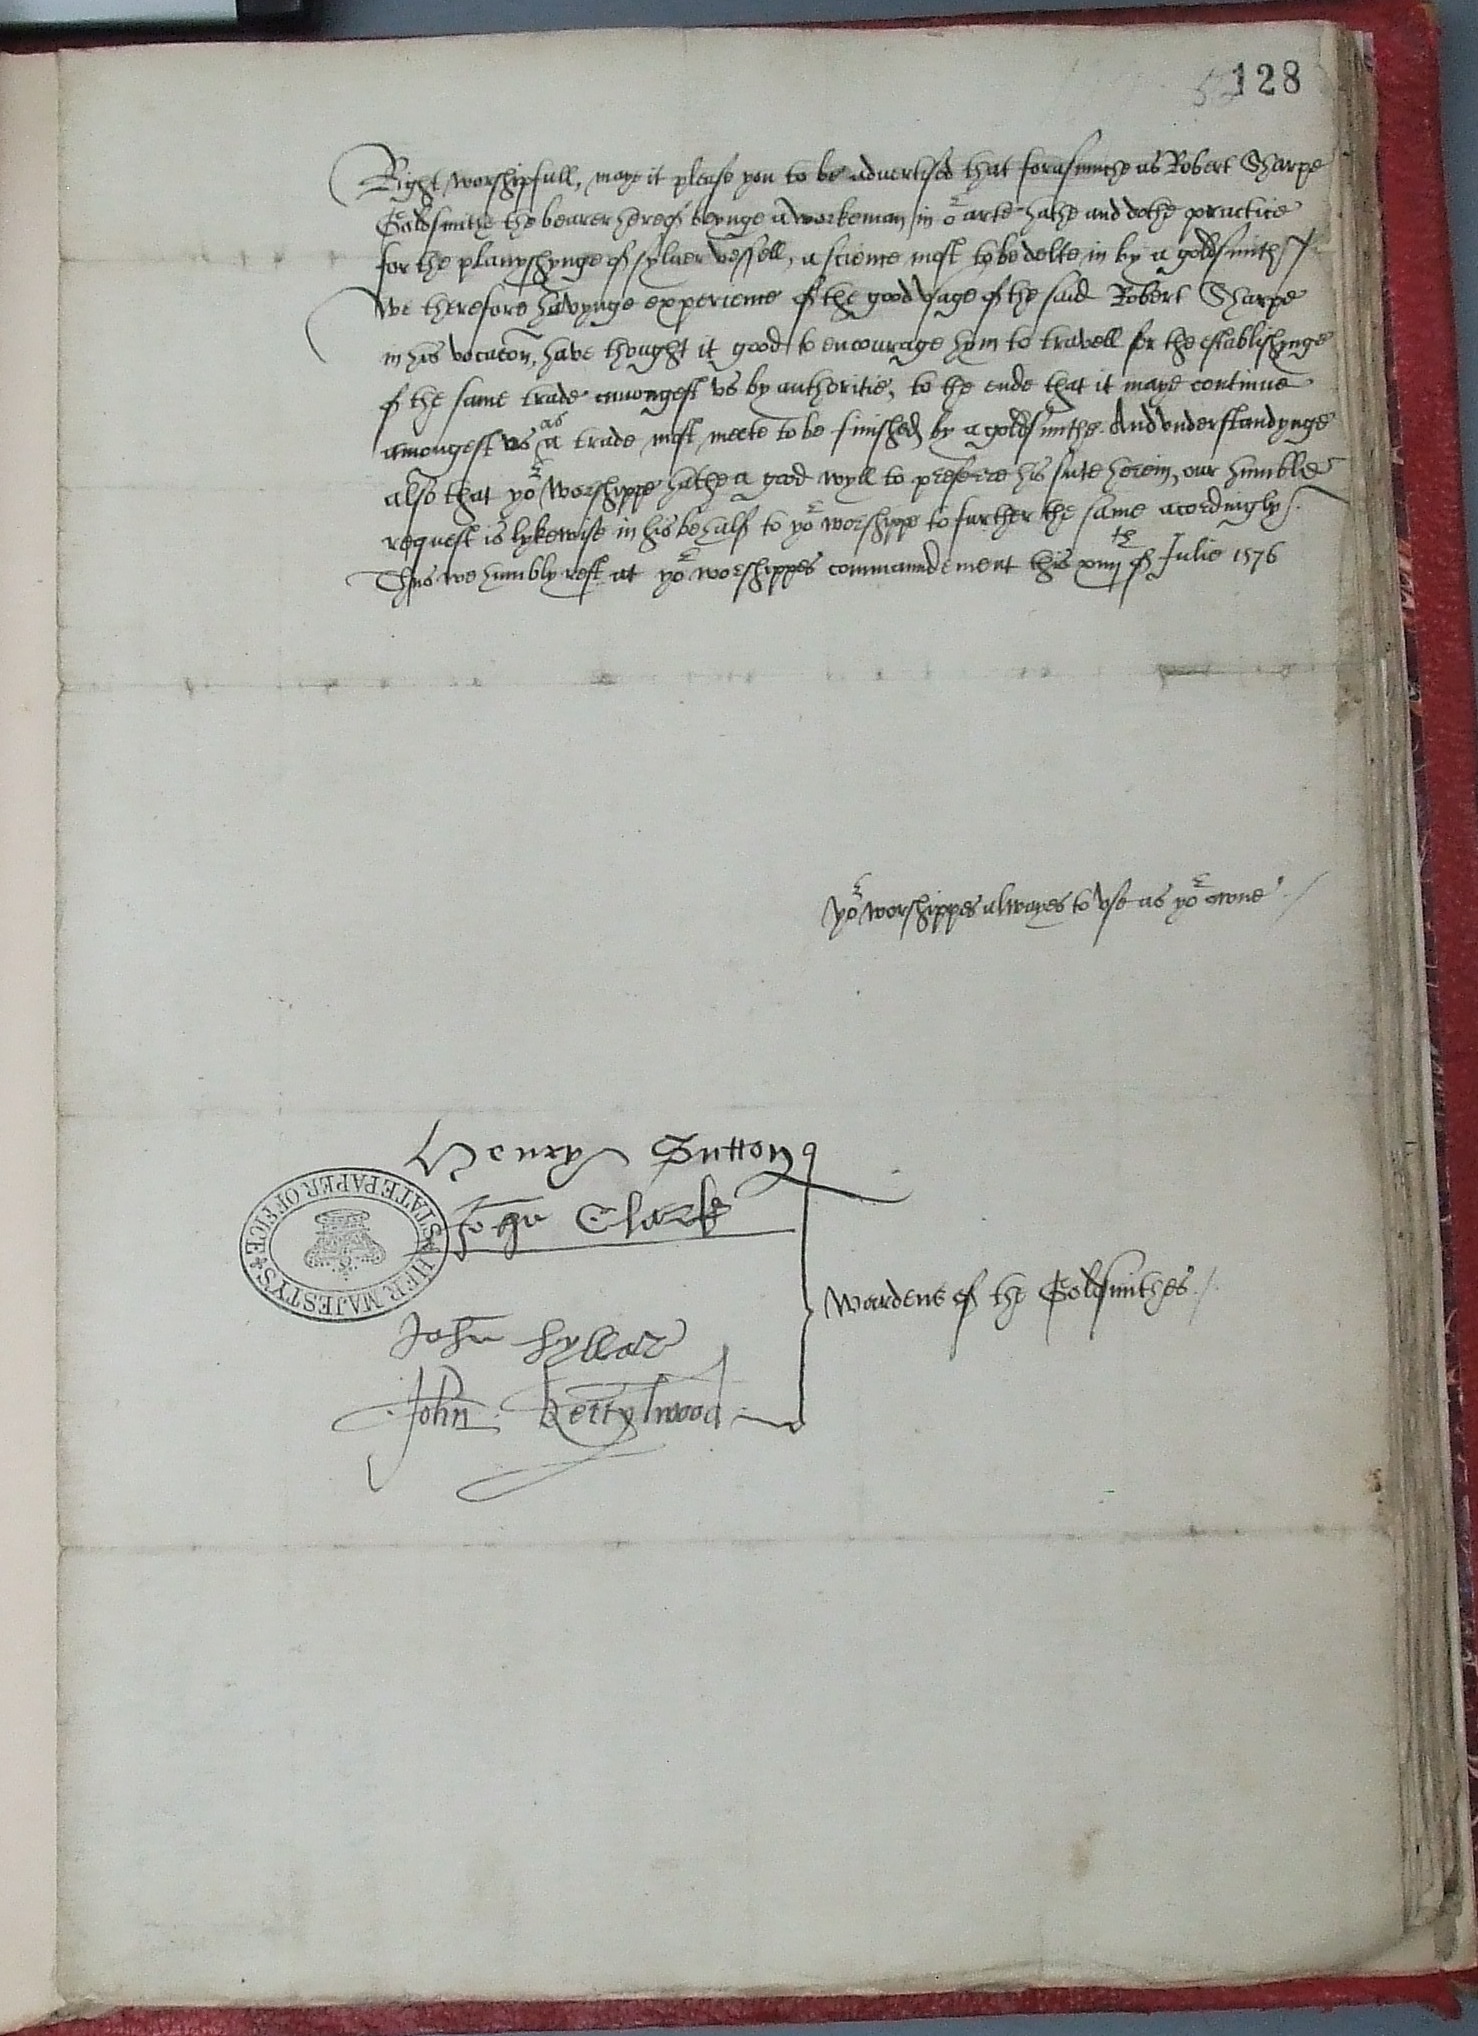 128
Right worshipfull, maye it please you to be advertised that forasmuche as Robert Sharpe
Goldsmithe the bearer hereof beynge a workeman in oʳ arte hathe and dothe practice
for the planyshynge of sylver vessell, a science most to be delte in by a goldsmith
We therefore havynge experience of the good usage of the said Robert Sharpe
in his vocacõn, have thought it good to encourage hym to travell for the establishynge
of the same trade amongest us by authoritie, to the ende that it maye continue
amongest us as a trade most meete to be finished by a goldsmithe. And understandynge
also that yoʳ worshippe hathe a good wyll to preferre his sute herein, our humble
request is lykewise in his behalf to yoʳ worshippe to further the same acordingly.
Thus we humbly rest at yoʳ worshippes commaundement this xiiijᵗʰ of Julie 1576
Yoʳ worshippes alwayes to use as yoʳ owne
Henry Sutton
John Clark
John Hyllar
John Kettylwood
Wardens of the Goldsmithes
HER MAJESTY'S STATE PAPER OFFICE